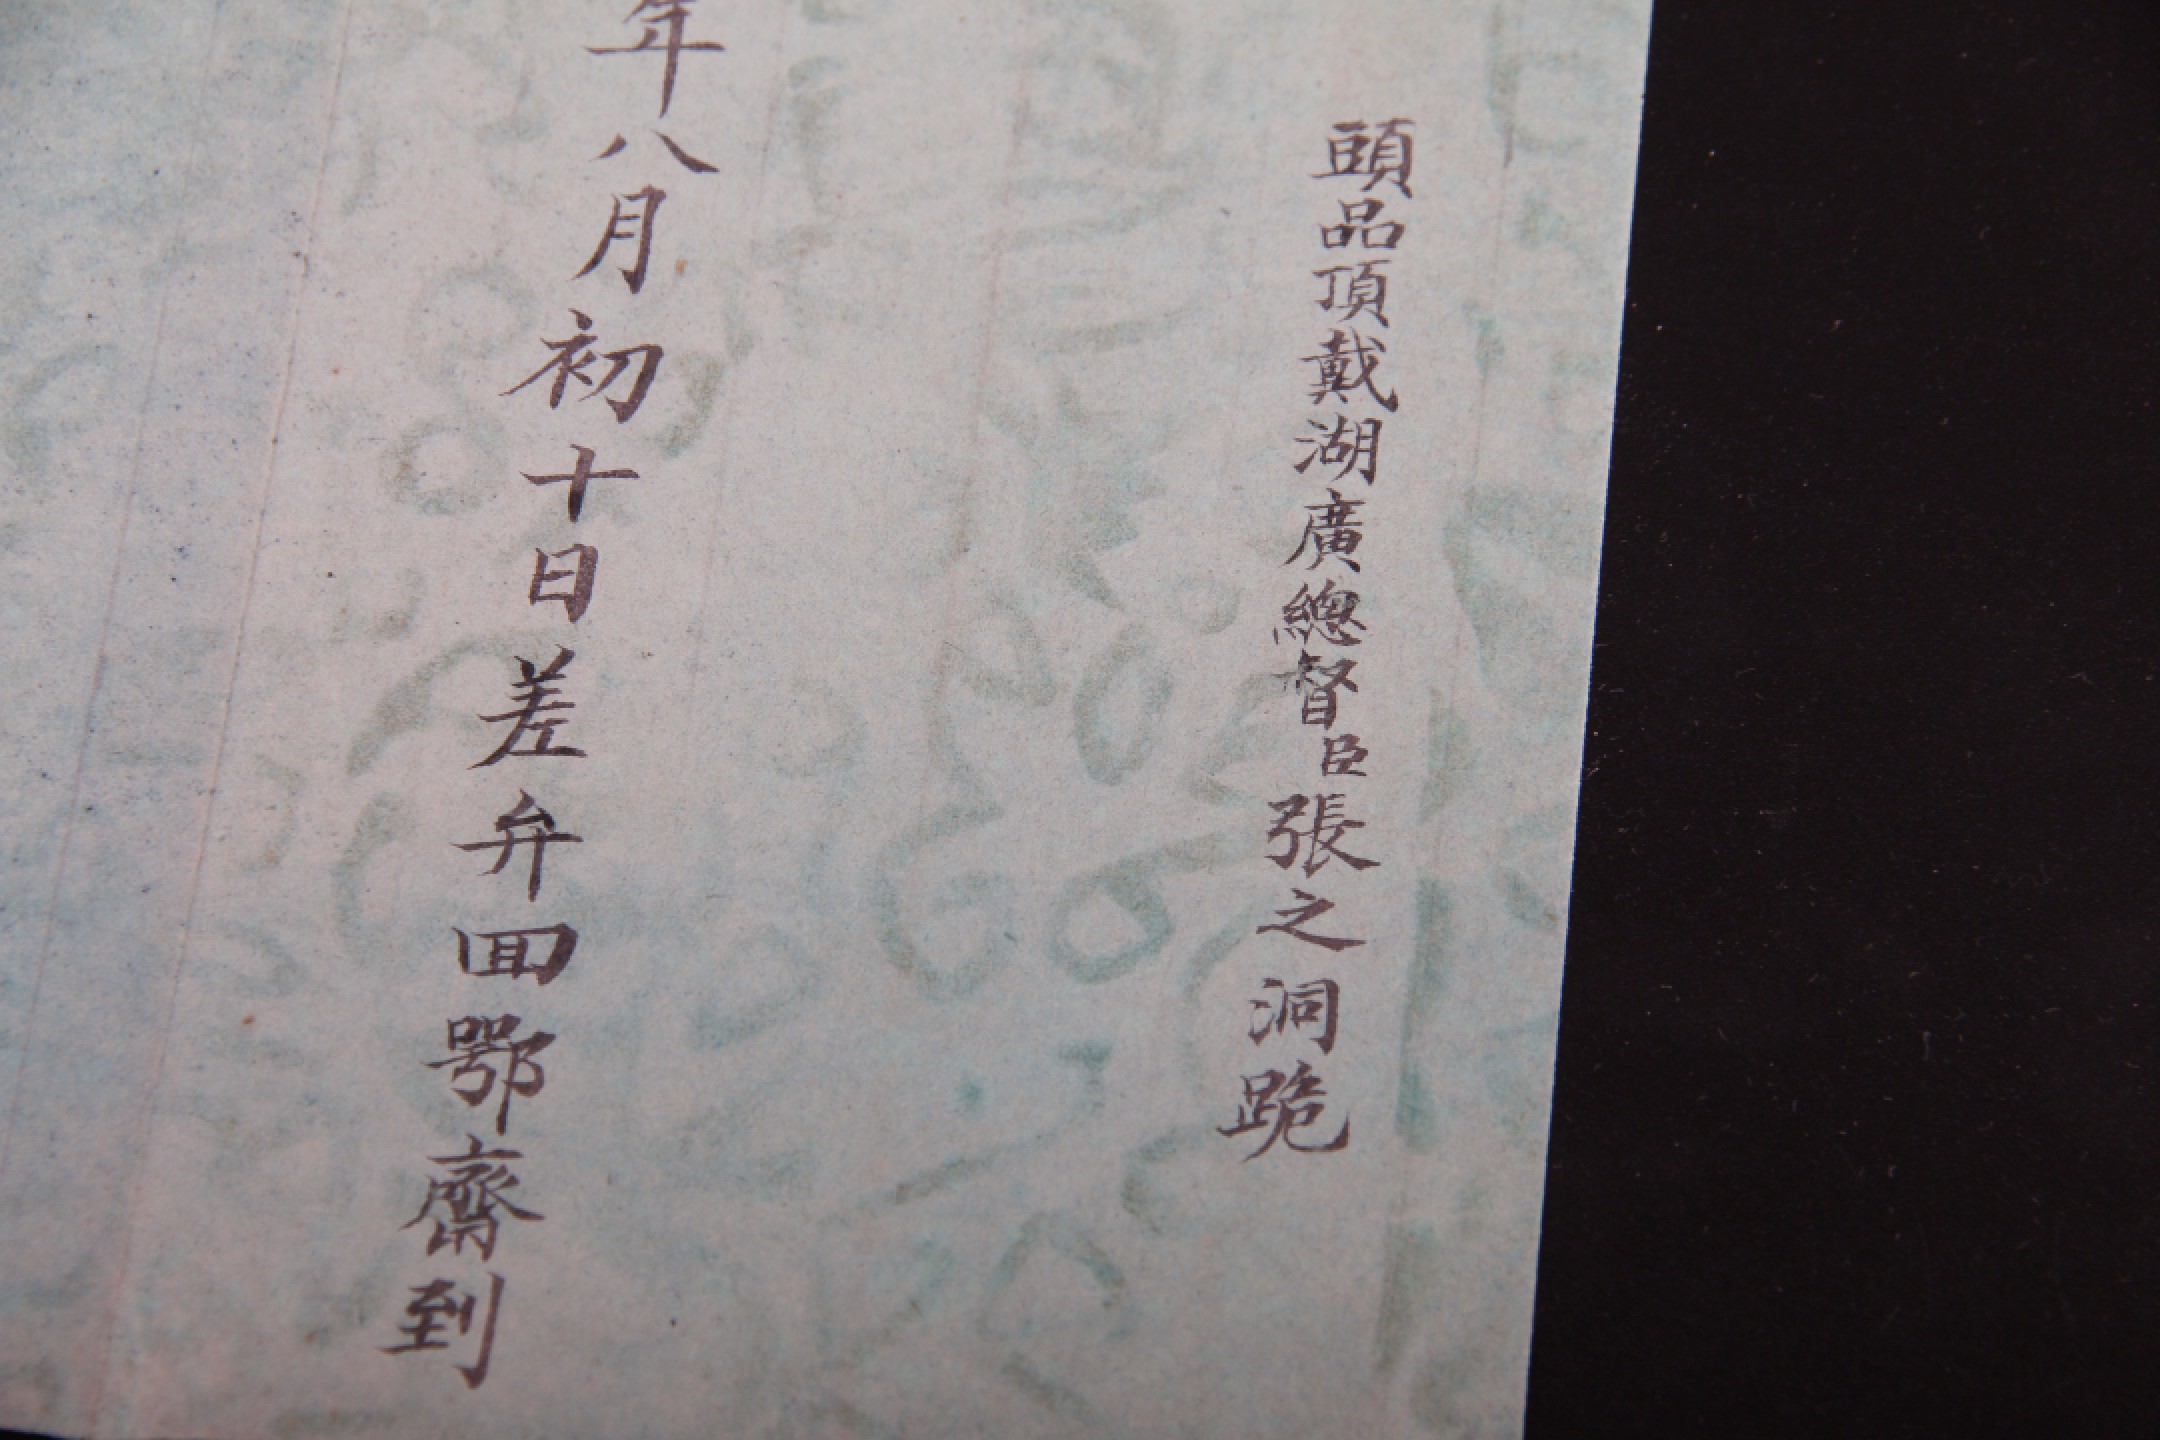 頭品頂戴湖廣總督臣張之洞跪
年八月初十日差弁回鄂齎到